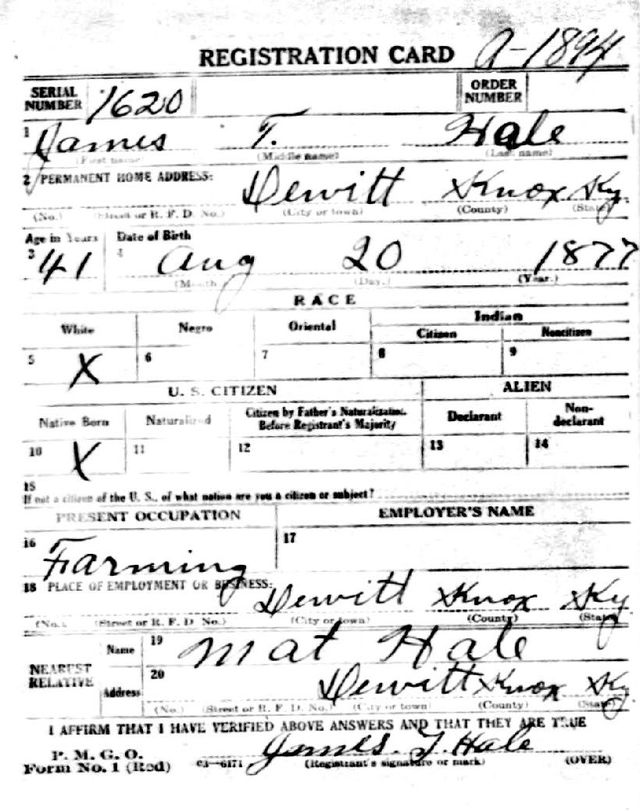 REGISTRATION CARD A-1894
SERIAL NUMBER 1620 ORDER NUMBER
1 James T. Hale
(First name) (Middle name) (Last name)
2 PERMANENT HOME ADDRESS: Dewitt Knox Ky.
(No.) (Street or R. F. D. No.) (City or town) (County) (State)
Age in Years Date of Birth
3 41 4 Aug 20 1877
(Month) (Day.) (Year.)
RACE
White Negro Oriental Indian
Citizen Noncitizen
5 X 6 7 8 9
U. S. CITIZEN ALIEN
Native Born Naturalized Citizen by Father's Naturalization Before Registrant's Majority Declarant Non-declarant
10 X 11 12 13 14
15
If not a citizen of the U. S., of what nation are you a citizen or subject?
PRESENT OCCUPATION EMPLOYER'S NAME
16 Farming 17
18 PLACE OF EMPLOYMENT OR BUSINESS:
Dewitt Knox Ky
(No.) (Street or R. F. D. No.) (City or town) (County) (State)
NEAREST RELATIVE Name 19 Mat Hale
Address 20 Dewitt Knox Ky.
(No.) (Street or R. F. D. No.) (City or town) (County) (State)
I AFFIRM THAT I HAVE VERIFIED ABOVE ANSWERS AND THAT THEY ARE TRUE
P. M. G. O.
Form No. 1 (Red) c3-6171 James. T. Hale
(Registrant's signature or mark) (OVER)